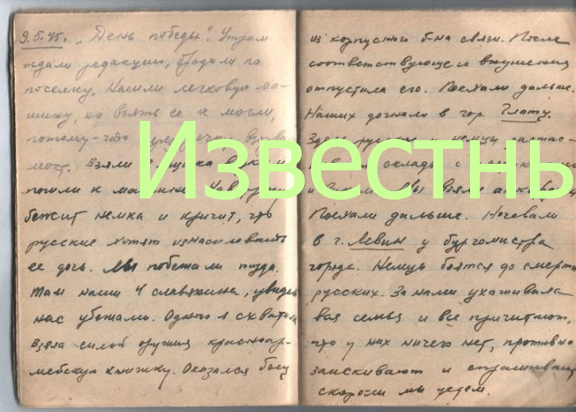 9.5.45. "День победы". Утром
ждали редакции, бродили по
поселку. Нашли легковую ма-
шину, но взять ее не могли,
потому-что
мост. Взяли
пошли к машине.
бежит немка и кричит, что
русские хотят изнасиловать
ее дочь. Мы побежали туда.
Там наши 4 славянина, увидев
нас убежали. Одного я схватил
взяла силой оружия красноар-
мейскую книжку. Оказался боец
из корпусного б-на связи. После
соответствующего внушения
отпустила его. Поехали дальше.
Наших догнали в гор. Глатц.
Здесь русские немцы
склады с
и Мы взяли
Поехали дальше. Ночевали
в г. Левин у бургомистра
города. Немцы боятся до смерти
русских. За нами ухаживала
вся семья и все причитают,
что у них ничего нет, противно
заискивают и спрашивают
скоро ли мы уедем.
Известнь